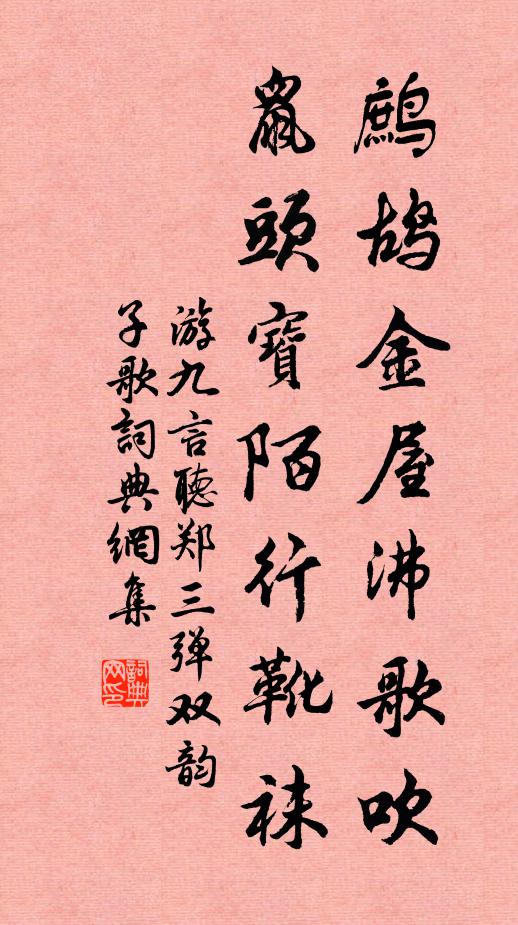 鷓鴣金屋沸歌吹
鼠頭寶陌行靴袜
游九言聽郑三弹双韵
子歌詞典網集
詞典网印